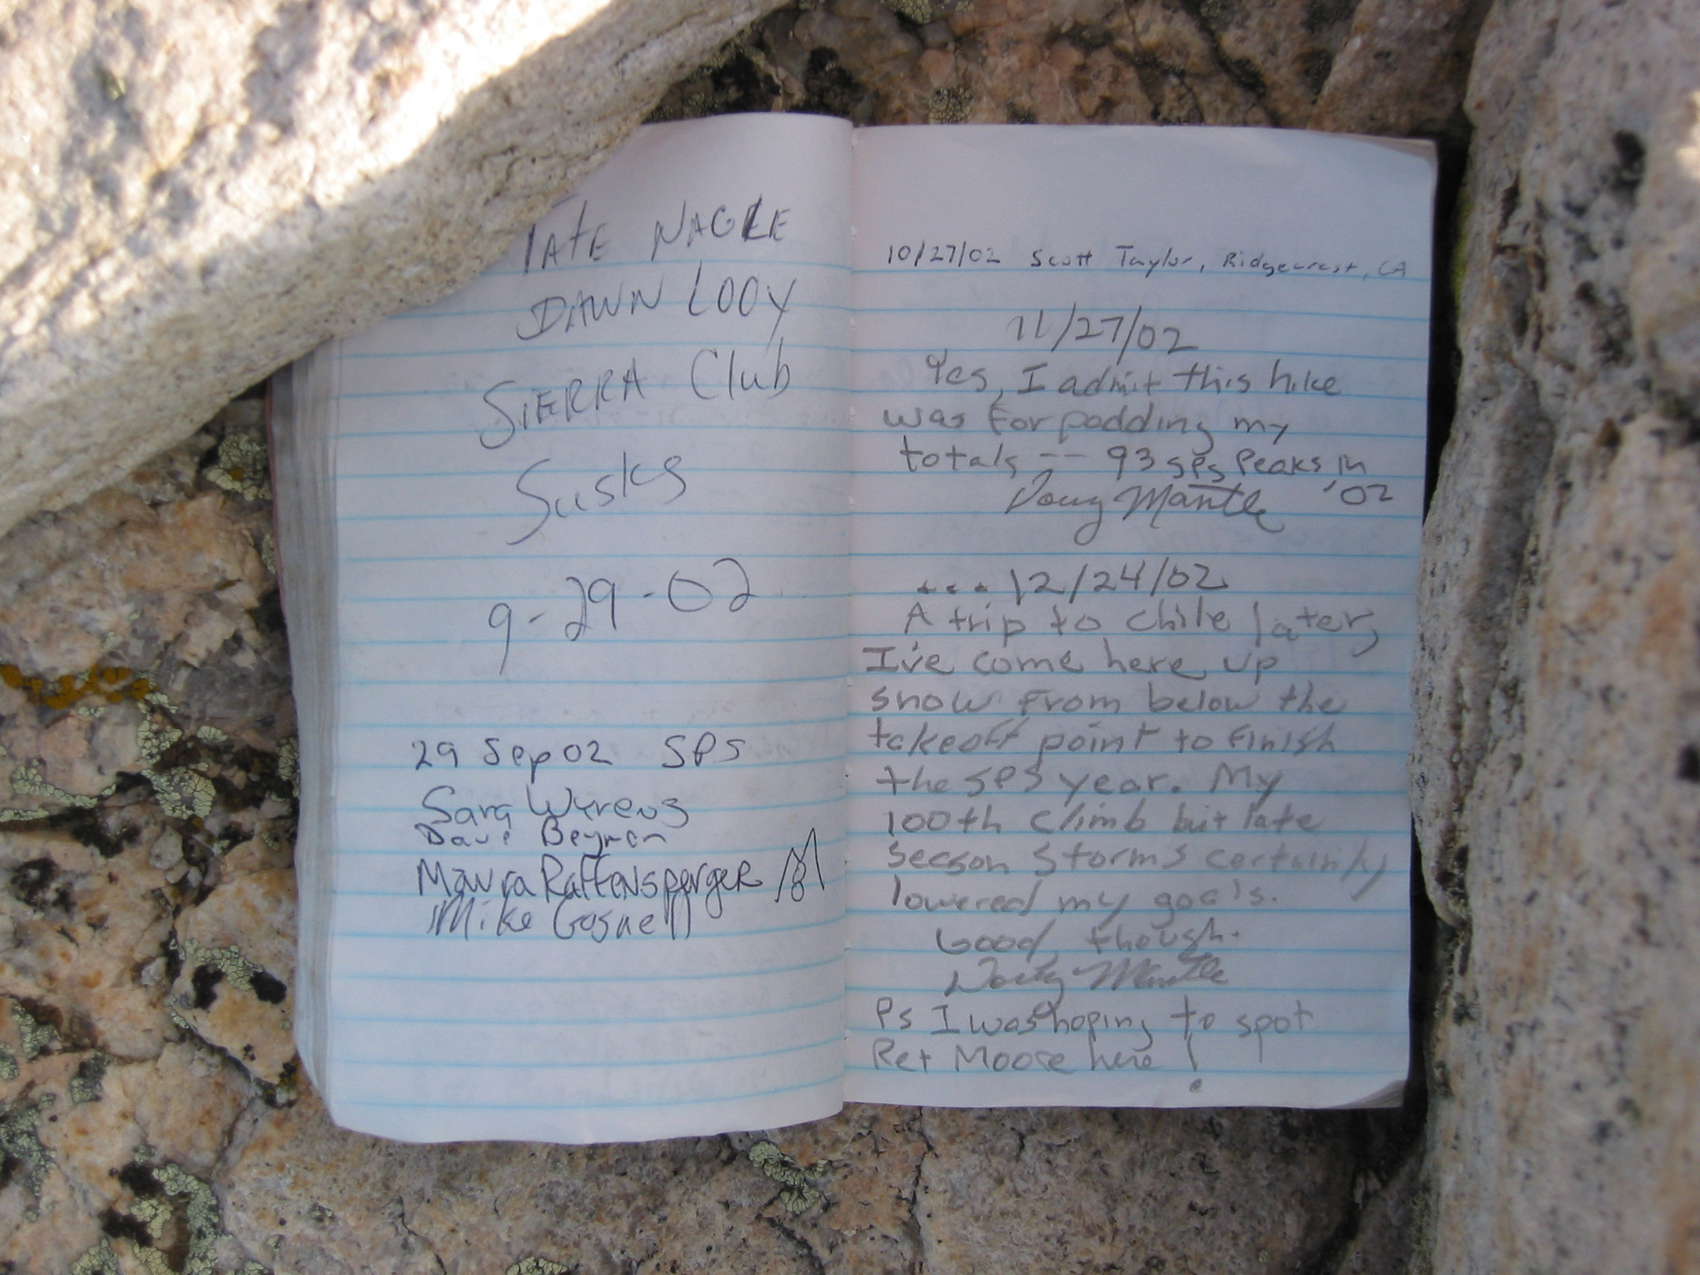 TATE NAGLE
DAWN LOOY
SIERRA Club
9-29-02
29 Sep 02 SPS
Sara Wyrens
Dave Beymon
Maura Raffensperger
Mike Gosnell
10/27/02 Scott Taylor, Ridgecrest, CA
11/27/02
Yes, I admit this hike
was for padding my
totals -- 93 SPS Peaks in
'02
Doug Mantle
... 12/24/02
A trip to Chile later,
I've come here up
snow from below the
takeoff point to finish
the SPS year. My
100th climb but late
season storms certainly
lowered my goals.
Good, though.
Doug Mantle
Ps I was hoping to spot
Ret Moore here!